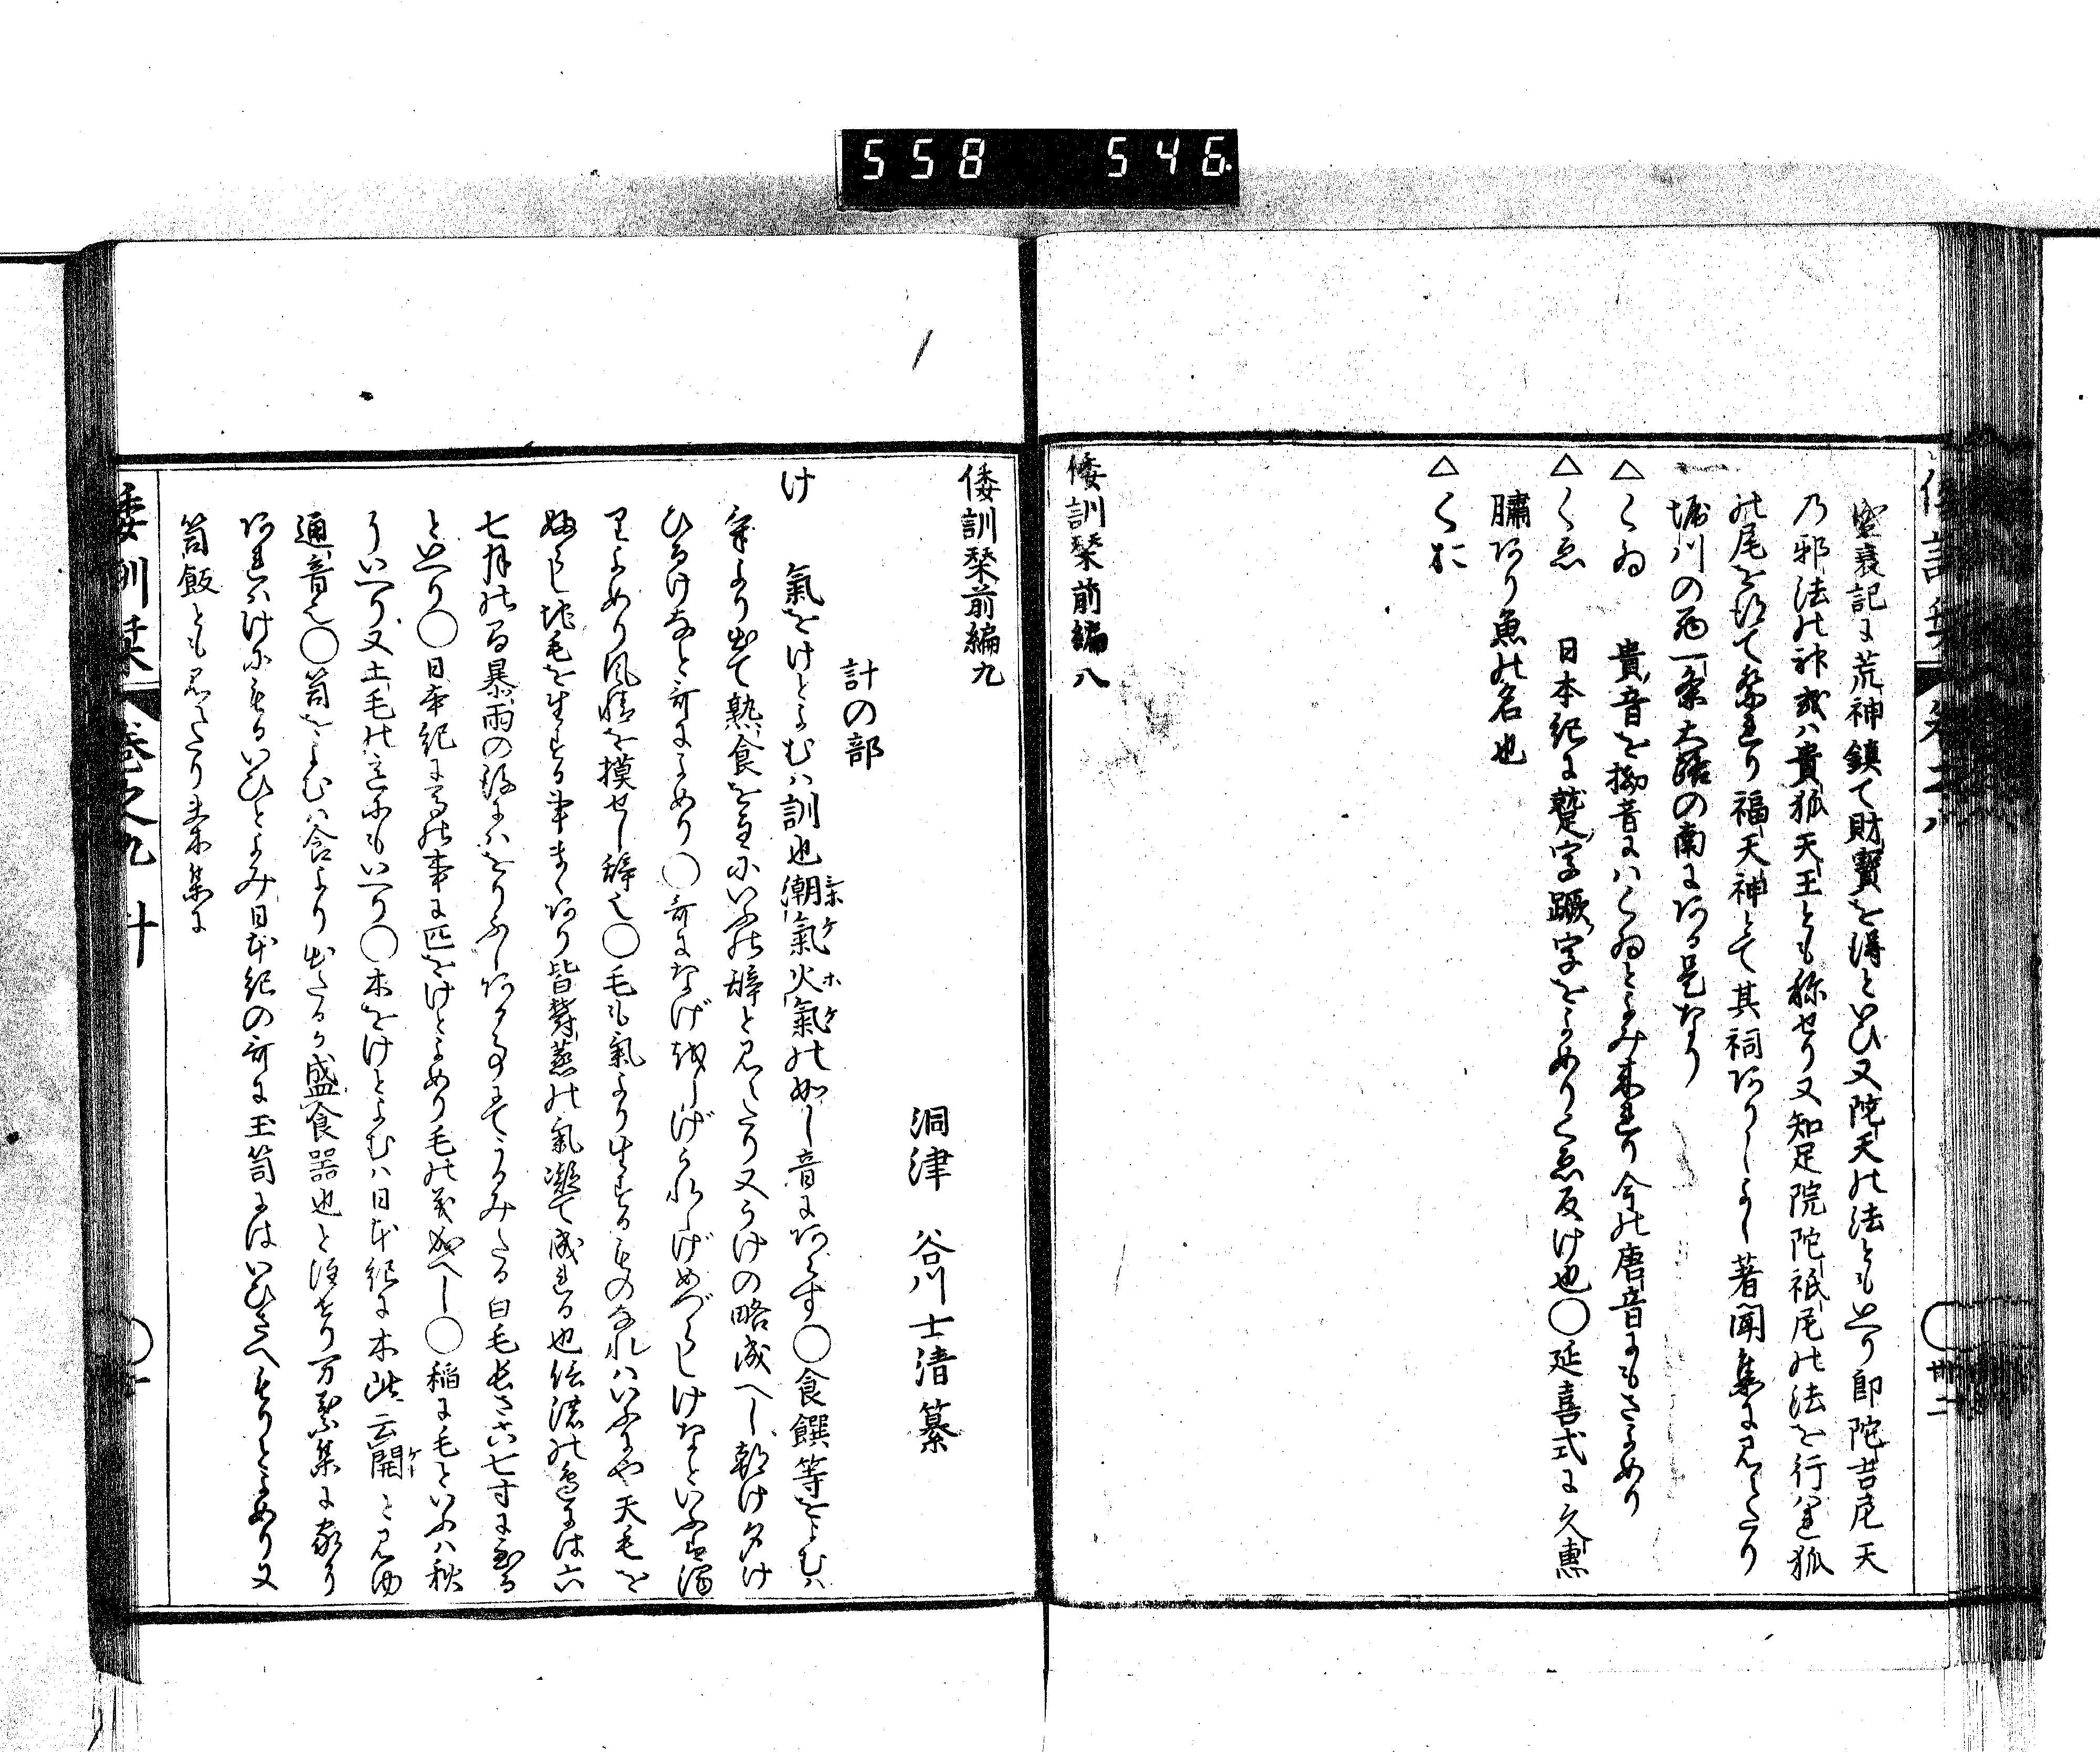 558 546
盛衰記に荒神鎮て財寶を得といひ又陀天の法とも云り即陀吉尼天
乃邪法の神或ハ貴狐天王とも称せり又知足院陀祇尼の法を行ハ連狐
の尾を得て祭れり福天神とて其祠ありしよし著聞集に見えたり
堀川の西一条大路の南にある是なり
△くゐ 貴音を拗音にハくゐとよみ来れり今の唐音にもさよめり
△くゑ 日本紀に蹵字蹶字をよめりくゑ反け也○延喜式に久恵
臛あり魚の名也
△くお
倭訓栞前編八
倭訓栞前編九
洞津 谷川士清纂
計の部
け 氣をけとよむハ訓也潮氣火氣の如し音にあらす○食饌等をよむハ
氣より出て熟食を主にいふの辞と見えたり又うけの略成へし朝け夕け
ひるけなと哥によめり○哥になげ
りよめり風情を摸せし辞也○毛も氣より生するものなれハいふにや天毛を
ふらし地毛を生する事まゝあり皆欝蒸の氣凝て成れる也信濃の
七月の比暴雨の後にハをりふしある事にてうるみたる白毛長さ六七寸に至る
と云り○日本紀に馬の事に匹をけとよめり毛の義成へし○稲に毛といふハ秋
といへり又土毛の意にもいへり○木をけとよむハ日本紀に木此云開と見ゆ
通音也○笥をよむハ食より出たるか盛食器也と注せり万葉集に家に
あれハけにもるいひとよみ日本紀の哥に玉笥にはいひさへもりとよめり又
笥飯とも見えたり
倭訓栞 巻之九 計